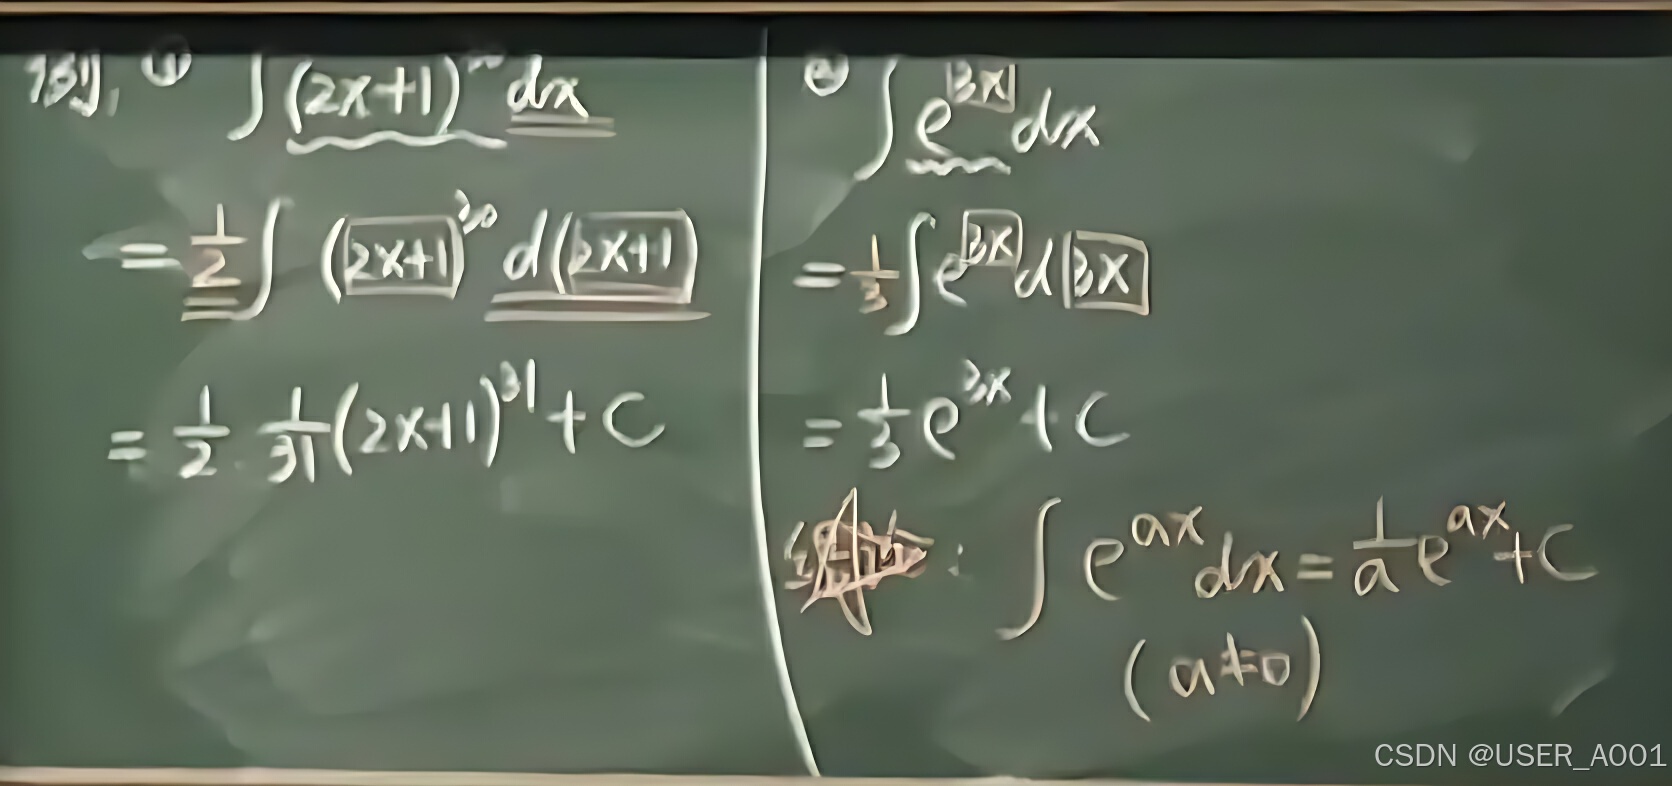 例, ① ∫(2x+1)³⁰ dx
= 1/2 ∫ (2x+1)³⁰ d(2x+1)
= 1/2 · 1/31 (2x+1)³¹ + C
② ∫ e^{3x} dx
= 1/3 ∫ e^{3x} d 3x
= 1/3 e^{3x} + C
: ∫ e^{ax} dx = 1/a e^{ax} + C
(a≠0)
CSDN @USER_A001